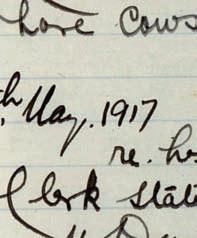 have cows
th May. 1917
re.
Clerk State